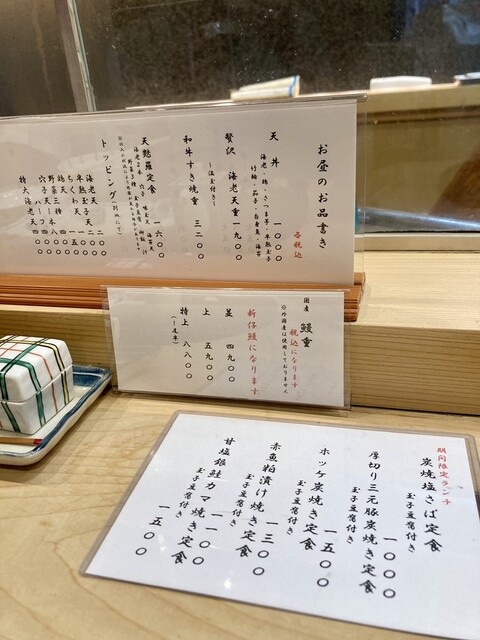 お昼のお品書き
各税込
天丼 一〇〇〇
海老・鶏・さつま芋・半熟玉子
竹輪・茄子・白身魚・海苔
贅沢 海老天重 一九〇〇
〜温玉付き〜
和牛すき焼重 三二〇〇
天麩羅定食 一六〇〇
トッピング(別皿にて)
海老天 二〇〇
半熟玉子天 二〇〇
ちくわ天 一五〇
鶏天 一〇〇
野菜三種
穴子天ハーフ 四〇〇
特大海老天 四〇〇
国産 鰻重
税込になります
※外国産は使用しておりません
新仔鰻になります
並 四九〇〇
上 五九〇〇
特上 八八〇〇
(一尾半)
期間限定ランチ
炭焼塩さば定食
玉子豆腐付き 一〇〇〇
厚切り三元豚炭焼き定食
玉子豆腐付き 一五〇〇
ホッケ炭焼き定食
玉子豆腐付き 一三〇〇
赤魚粕漬け焼き定食
玉子豆腐付き 一一〇〇
甘塩銀鮭カマ焼き定食
玉子豆腐付き 一五〇〇